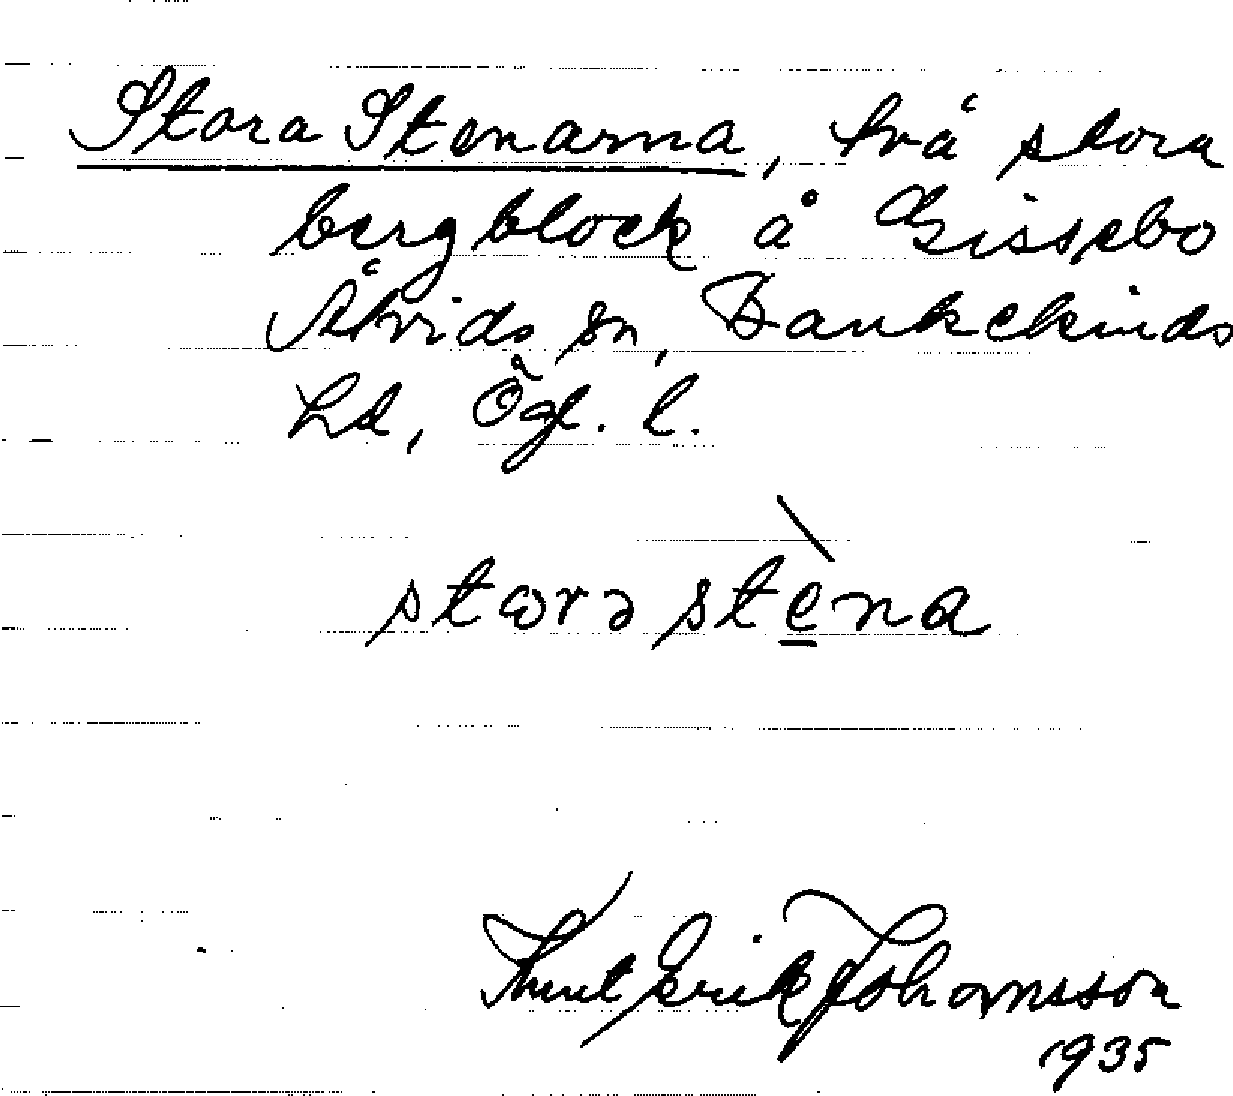 Stora Stenarna, två stora
bergblock å Gissebo
Åtvids sn, Bankekinds
hd, Ögl. l.
stωrə stèna
Knut Erik Johansson
1935